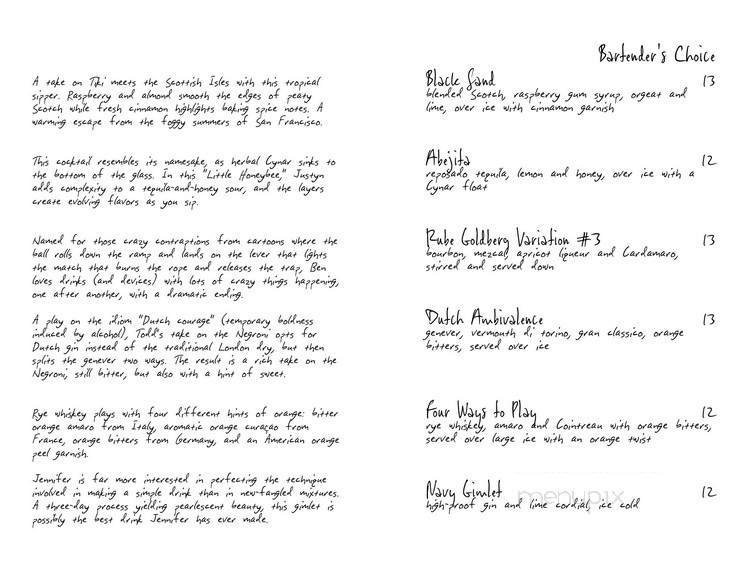 A take on Tiki meets the Scottish Isles with this tropical
sipper. Raspberry and almond smooth the edges of peaty
Scotch while fresh cinnamon highlights baking spice notes. A
warming escape from the foggy summers of San Francisco.
This cocktail resembles its namesake, as herbal Cynar sinks to
the bottom of the glass. In this "Little Honeybee," Justyn
adds complexity to a tequila-and-honey sour, and the layers
create evolving flavors as you sip.
Named for those crazy contraptions from cartoons where the
ball rolls down the ramp and lands on the lever that lights
the match that burns the rope and releases the trap, Ben
loves drinks (and devices) with lots of crazy things happening,
one after another, with a dramatic ending.
A play on the idiom "Dutch courage" (temporary boldness
induced by alcohol), Todd's take on the Negroni opts for
Dutch gin instead of the traditional London dry, but then
splits the genever two ways. The result is a rich take on the
Negroni; still bitter, but also with a hint of sweet.
Rye whiskey plays with four different hints of orange: bitter
orange amaro from Italy, aromatic orange curaçao from
France, orange bitters from Germany, and an American orange
peel garnish.
Jennifer is far more interested in perfecting the technique
involved in making a simple drink than in new-fangled mixtures.
A three-day process yielding pearlescent beauty, this gimlet is
possibly the best drink Jennifer has ever made.
Bartender's Choice
Black Sand 13
blended Scotch, raspberry gum syrup, orgeat and
lime, over ice with cinnamon garnish
Abejita 12
reposado tequila, lemon and honey, over ice with a
Cynar float
Rube Goldberg Variation #3 13
bourbon, mezcal, apricot liqueur and Cardamaro,
stirred and served down
Dutch Ambivalence 13
genever, vermouth di torino, gran classico, orange
bitters, served over ice
Four Ways to Play 12
rye whiskey, amaro and Cointreau with orange bitters,
served over large ice with an orange twist
Navy Gimlet 12
high-proof gin and lime cordial, ice cold
menupix